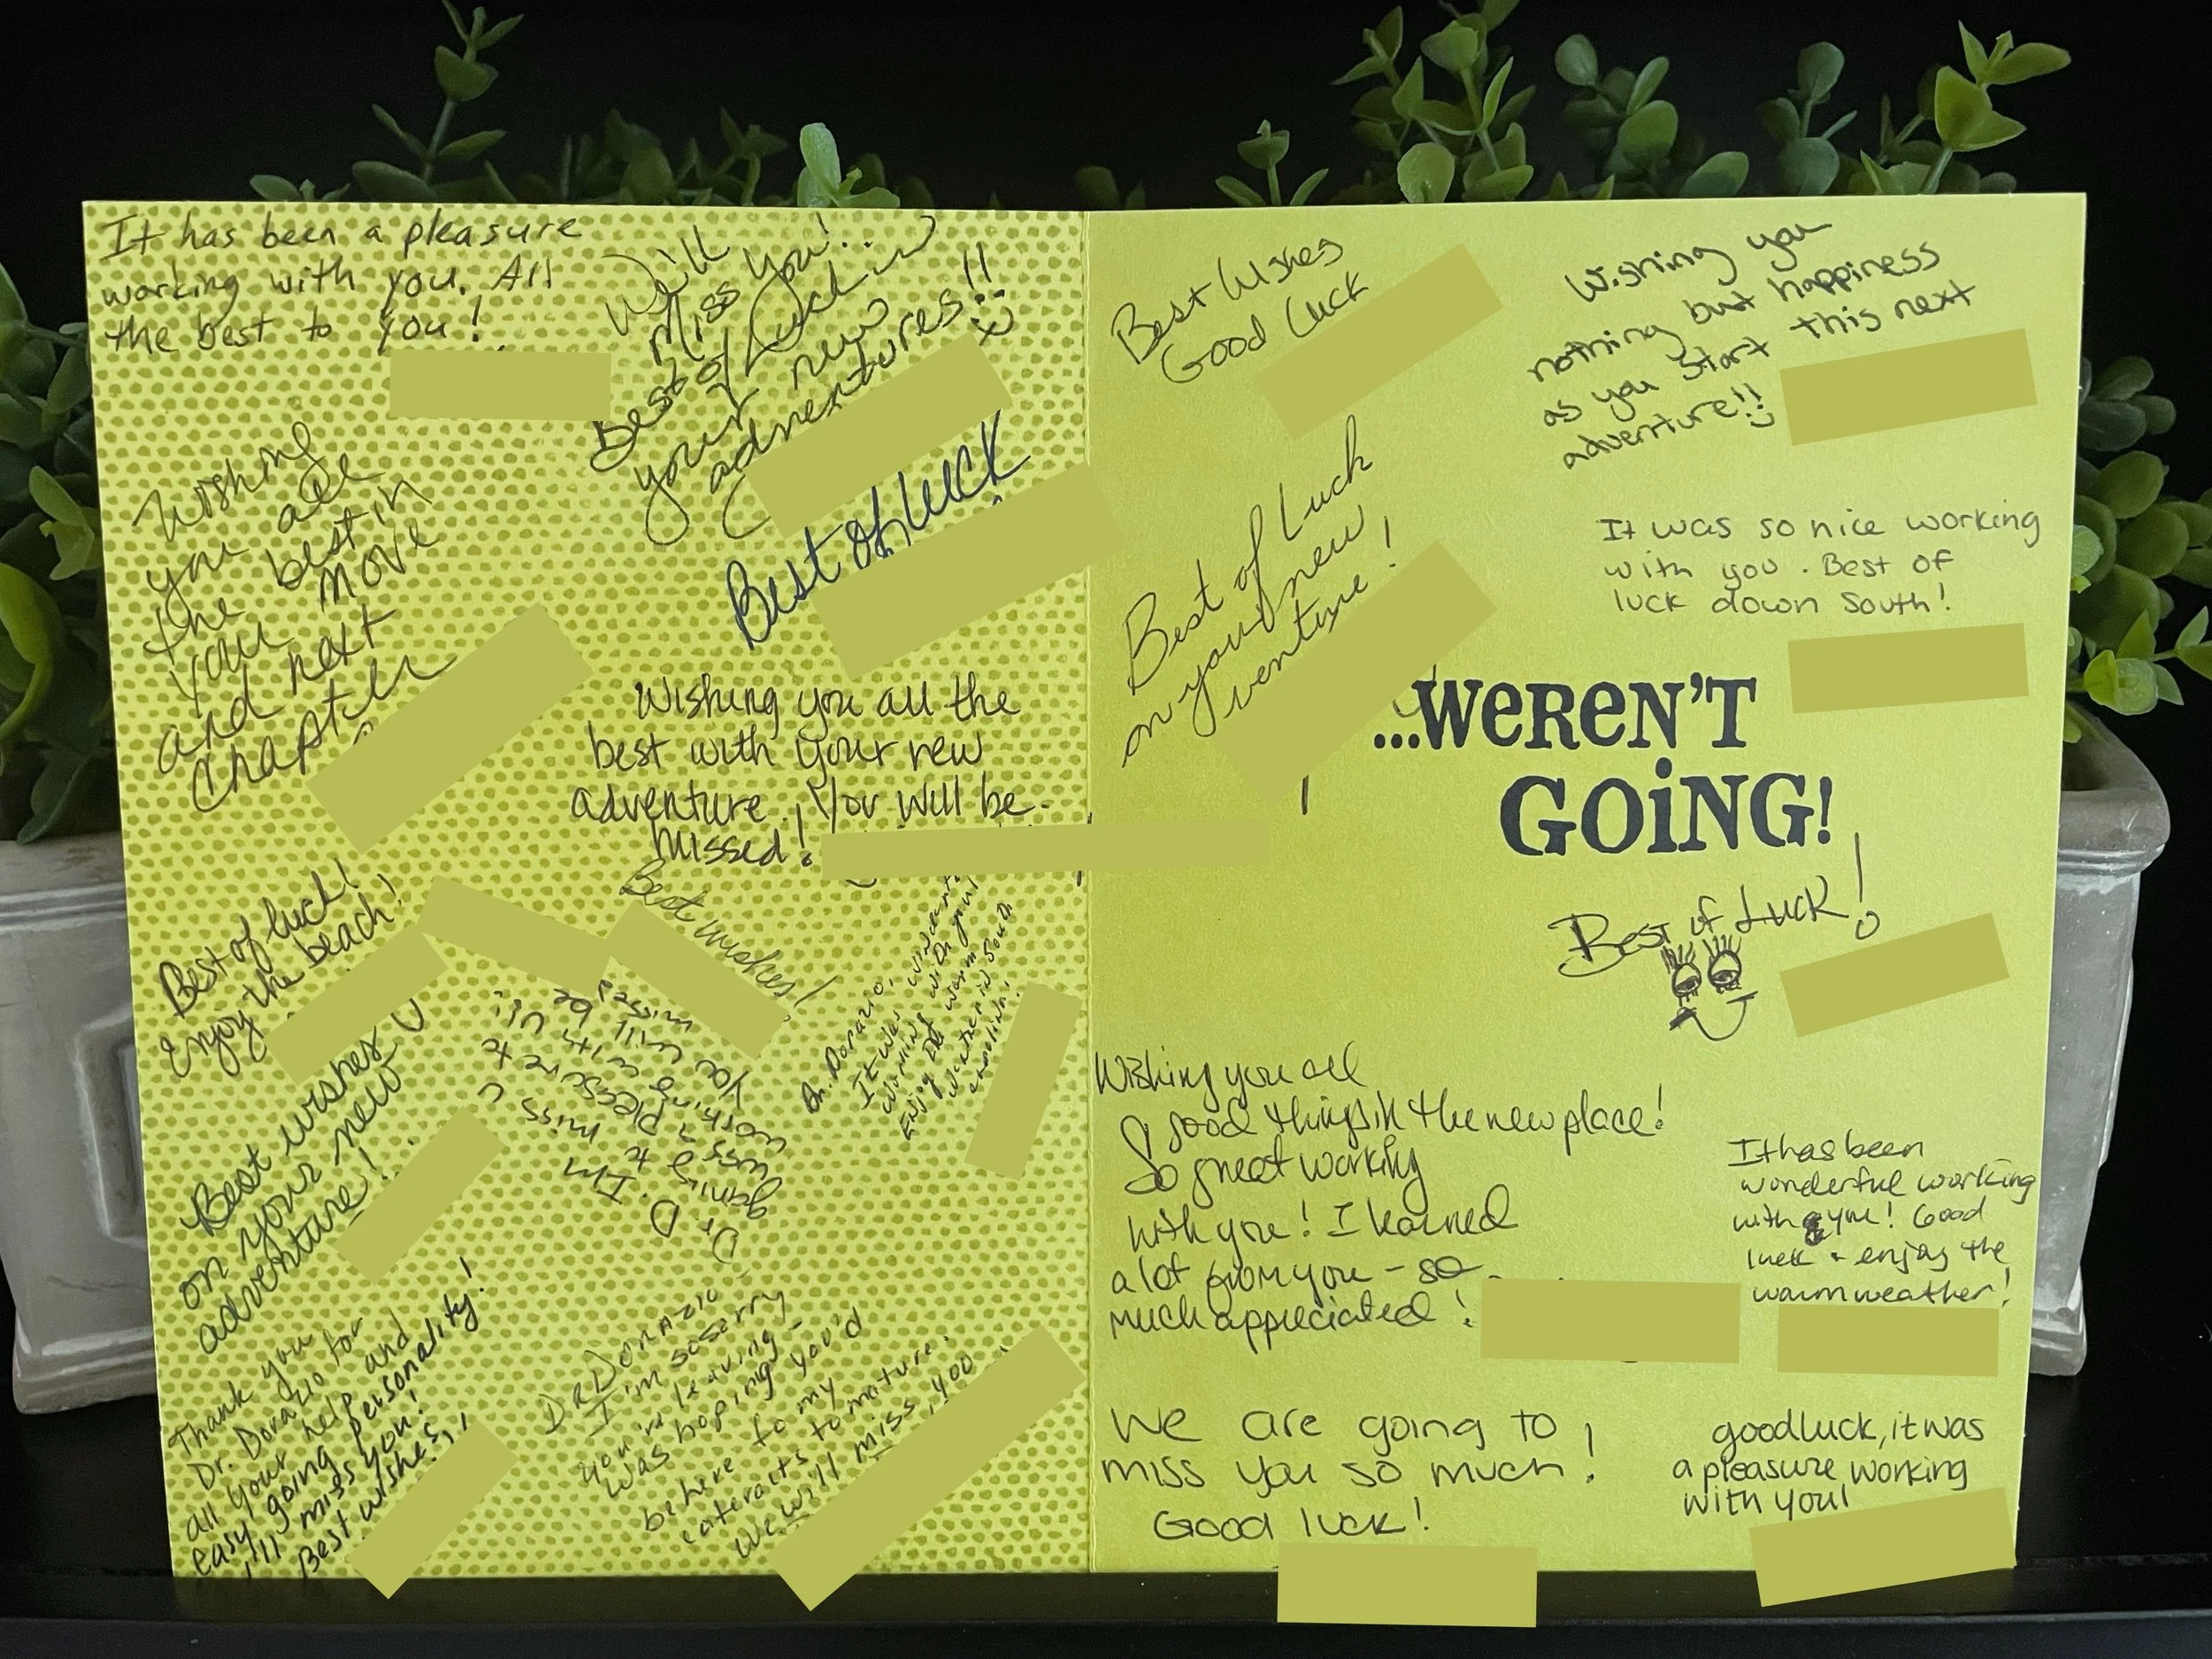 It has been a pleasure
working with you. All
the best to you!
Will
Miss you!..
Best of Luck in
your new
adventures!!
Wishing
you all
the best in
your move
and next
Chapter
Best of luck
Wishing you all the
best with your new
adventure. You will be
missed!
Best of luck!
Enjoy the beach!
Best wishes!
Dr. Dorazio,
It was
working with you!
Enjoy the warm
weather in South
Carolina!
Best wishes
on your new
adventure!
Dr D. I'm
going to miss u
was a pleasure to
working with u!
You will be
missed
Thank you
Dr. Dorazio for
all your help and
easy going personality!
I'll miss you!
Best wishes,
Dr Dorazio
I'm so sorry
you're leaving -
was hoping you'd
be here for my
cataracts to mature.
We will miss you
Best Wishes
Good Luck
Wishing you
nothing but happiness
as you start this next
adventure!!
Best of Luck
on your new
venture!
It was so nice working
with you. Best of
luck down South!
...WEREN'T
GOiNG!
Best of Luck!
Wishing you all
good things in the new place!
So great working
with you! I learned
a lot from you - so
much appreciated!
It has been
wonderful working
with you! Good
luck + enjoy the
warm weather!
We are going to
miss you so much!
Good luck!
good luck, it was
a pleasure working
with you!